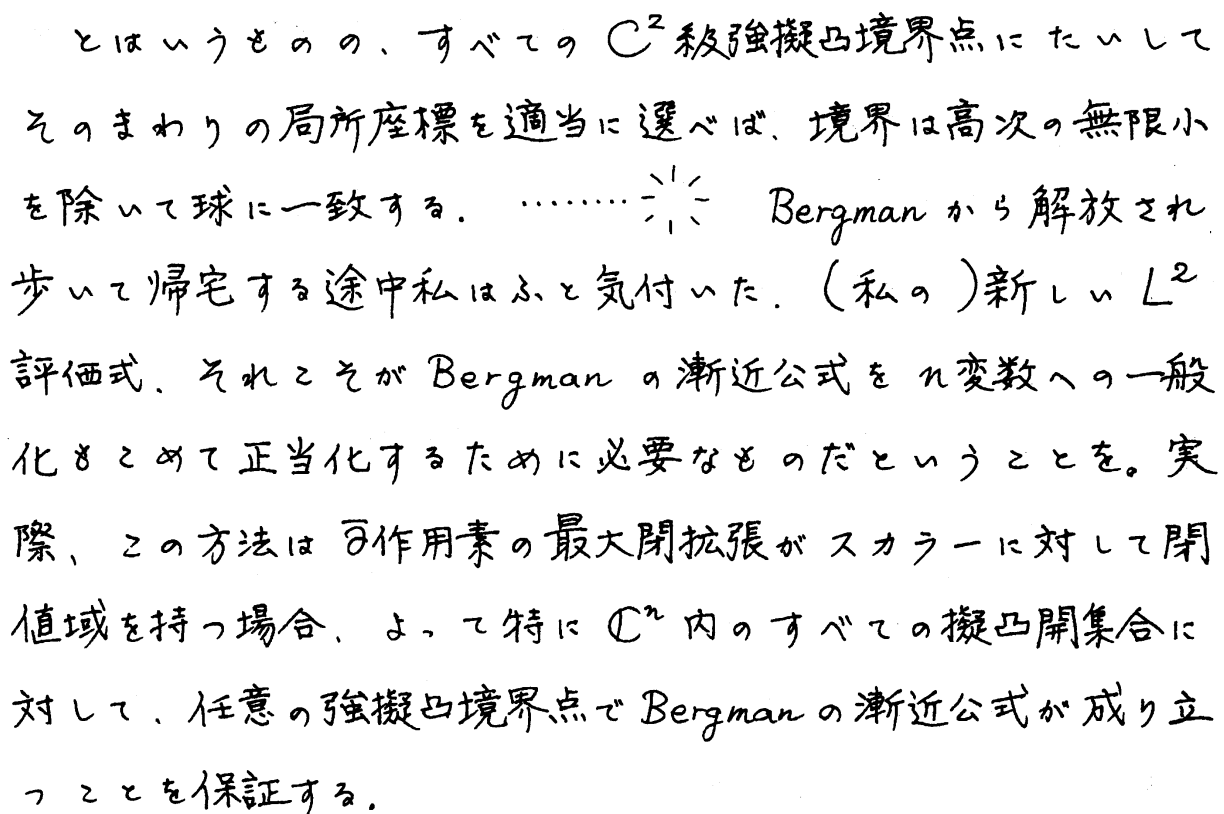 とはいうものの、すべての C²級強擬凸境界点にたいして
そのまわりの局所座標を適当に選べば、境界は高次の無限小
を除いて球に一致する. ········ Bergman から解放され
歩いて帰宅する途中私はふと気付いた. (私の)新しい L²
評価式、それこそが Bergman の漸近公式を n変数への一般
化もこめて正当化するために必要なものだということを。実
際、この方法は ∂̄作用素の最大閉拡張がスカラーに対して閉
値域を持つ場合、よって特に ℂⁿ 内のすべての擬凸開集合に
対して、任意の強擬凸境界点で Bergman の漸近公式が成り立
つことを保証する.